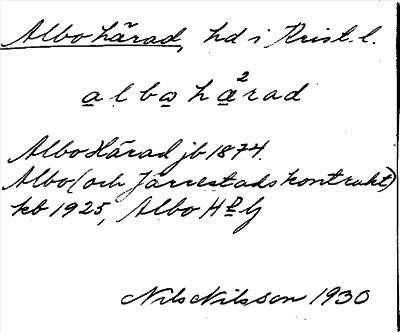 Albo härad, hd i Krist. l.
albo hä²rad
Albo Härad jb 1874.
Albo (och Järrestads kontrakt)
kb 1925, Albo Hd G
Nils Nilsson 1930